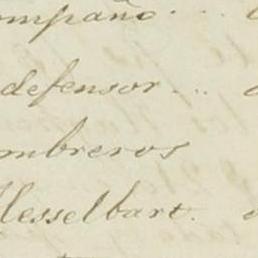 ompaño ...
defensor ...
ombreros
Hesselbart.